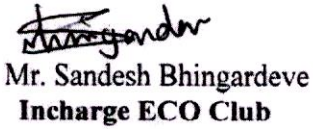 Mr. Sandesh Bhingardeve
Incharge ECO Club